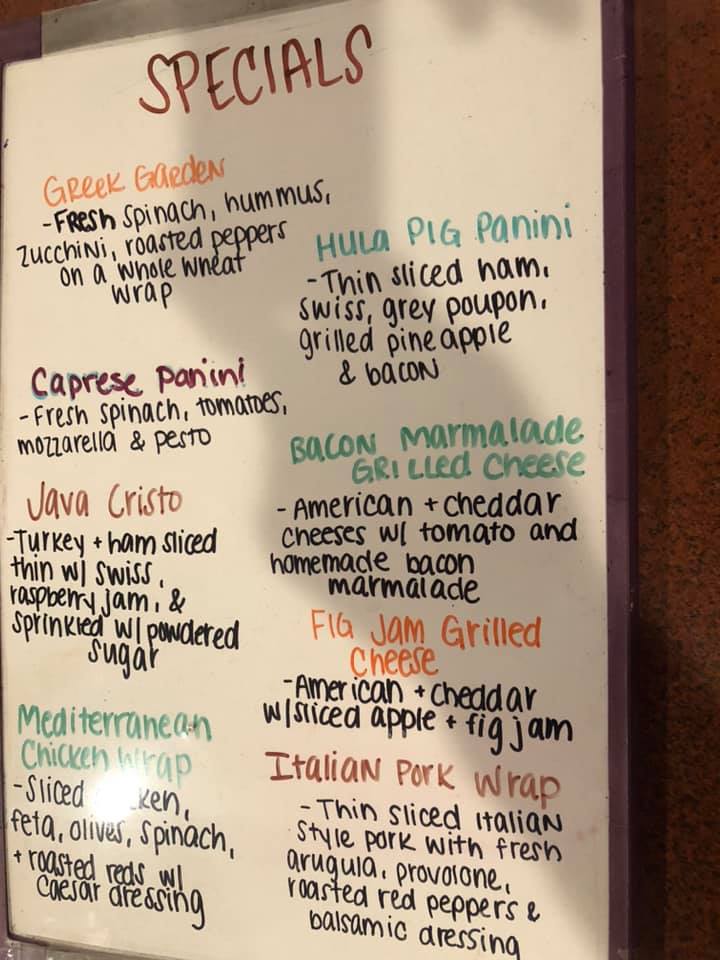 SPECIALS
GREEK GARDEN
-FRESH SPINACH, HUMMUS,
ZUCCHINI, ROASTED PEPPERS
ON A WHOLE WHEAT
WRAP
Caprese Panini
- FRESH SPINACH, TOMATOES,
MOZZARELLA & PESTO
Java Cristo
-TURKEY + HAM SLICED
THIN W/ SWISS,
RASPBERRY JAM, &
SPRINKLED W/ POWDERED
SUGAR
Mediterranean
Chicken Wrap
-SLICED
FETA, OLIVES, SPINACH,
+ ROASTED REDS W/
CAESAR DRESSING
HULA PIG Panini
-THIN SLICED HAM,
SWISS, GREY POUPON,
GRILLED PINEAPPLE
& BACON
BACON Marmalade
GRILLED CHEESE
- AMERICAN + CHEDDAR
CHEESES W/ TOMATO AND
HOMEMADE BACON
MARMALADE
FIG JAM GRILLED
CHEESE
-AMERICAN + CHEDDAR
W/SLICED APPLE + FIG JAM
ITALIAN PORK WRAP
- THIN SLICED ITALIAN
STYLE PORK WITH FRESH
ARUGULA, PROVOLONE,
ROASTED RED PEPPERS &
BALSAMIC DRESSING